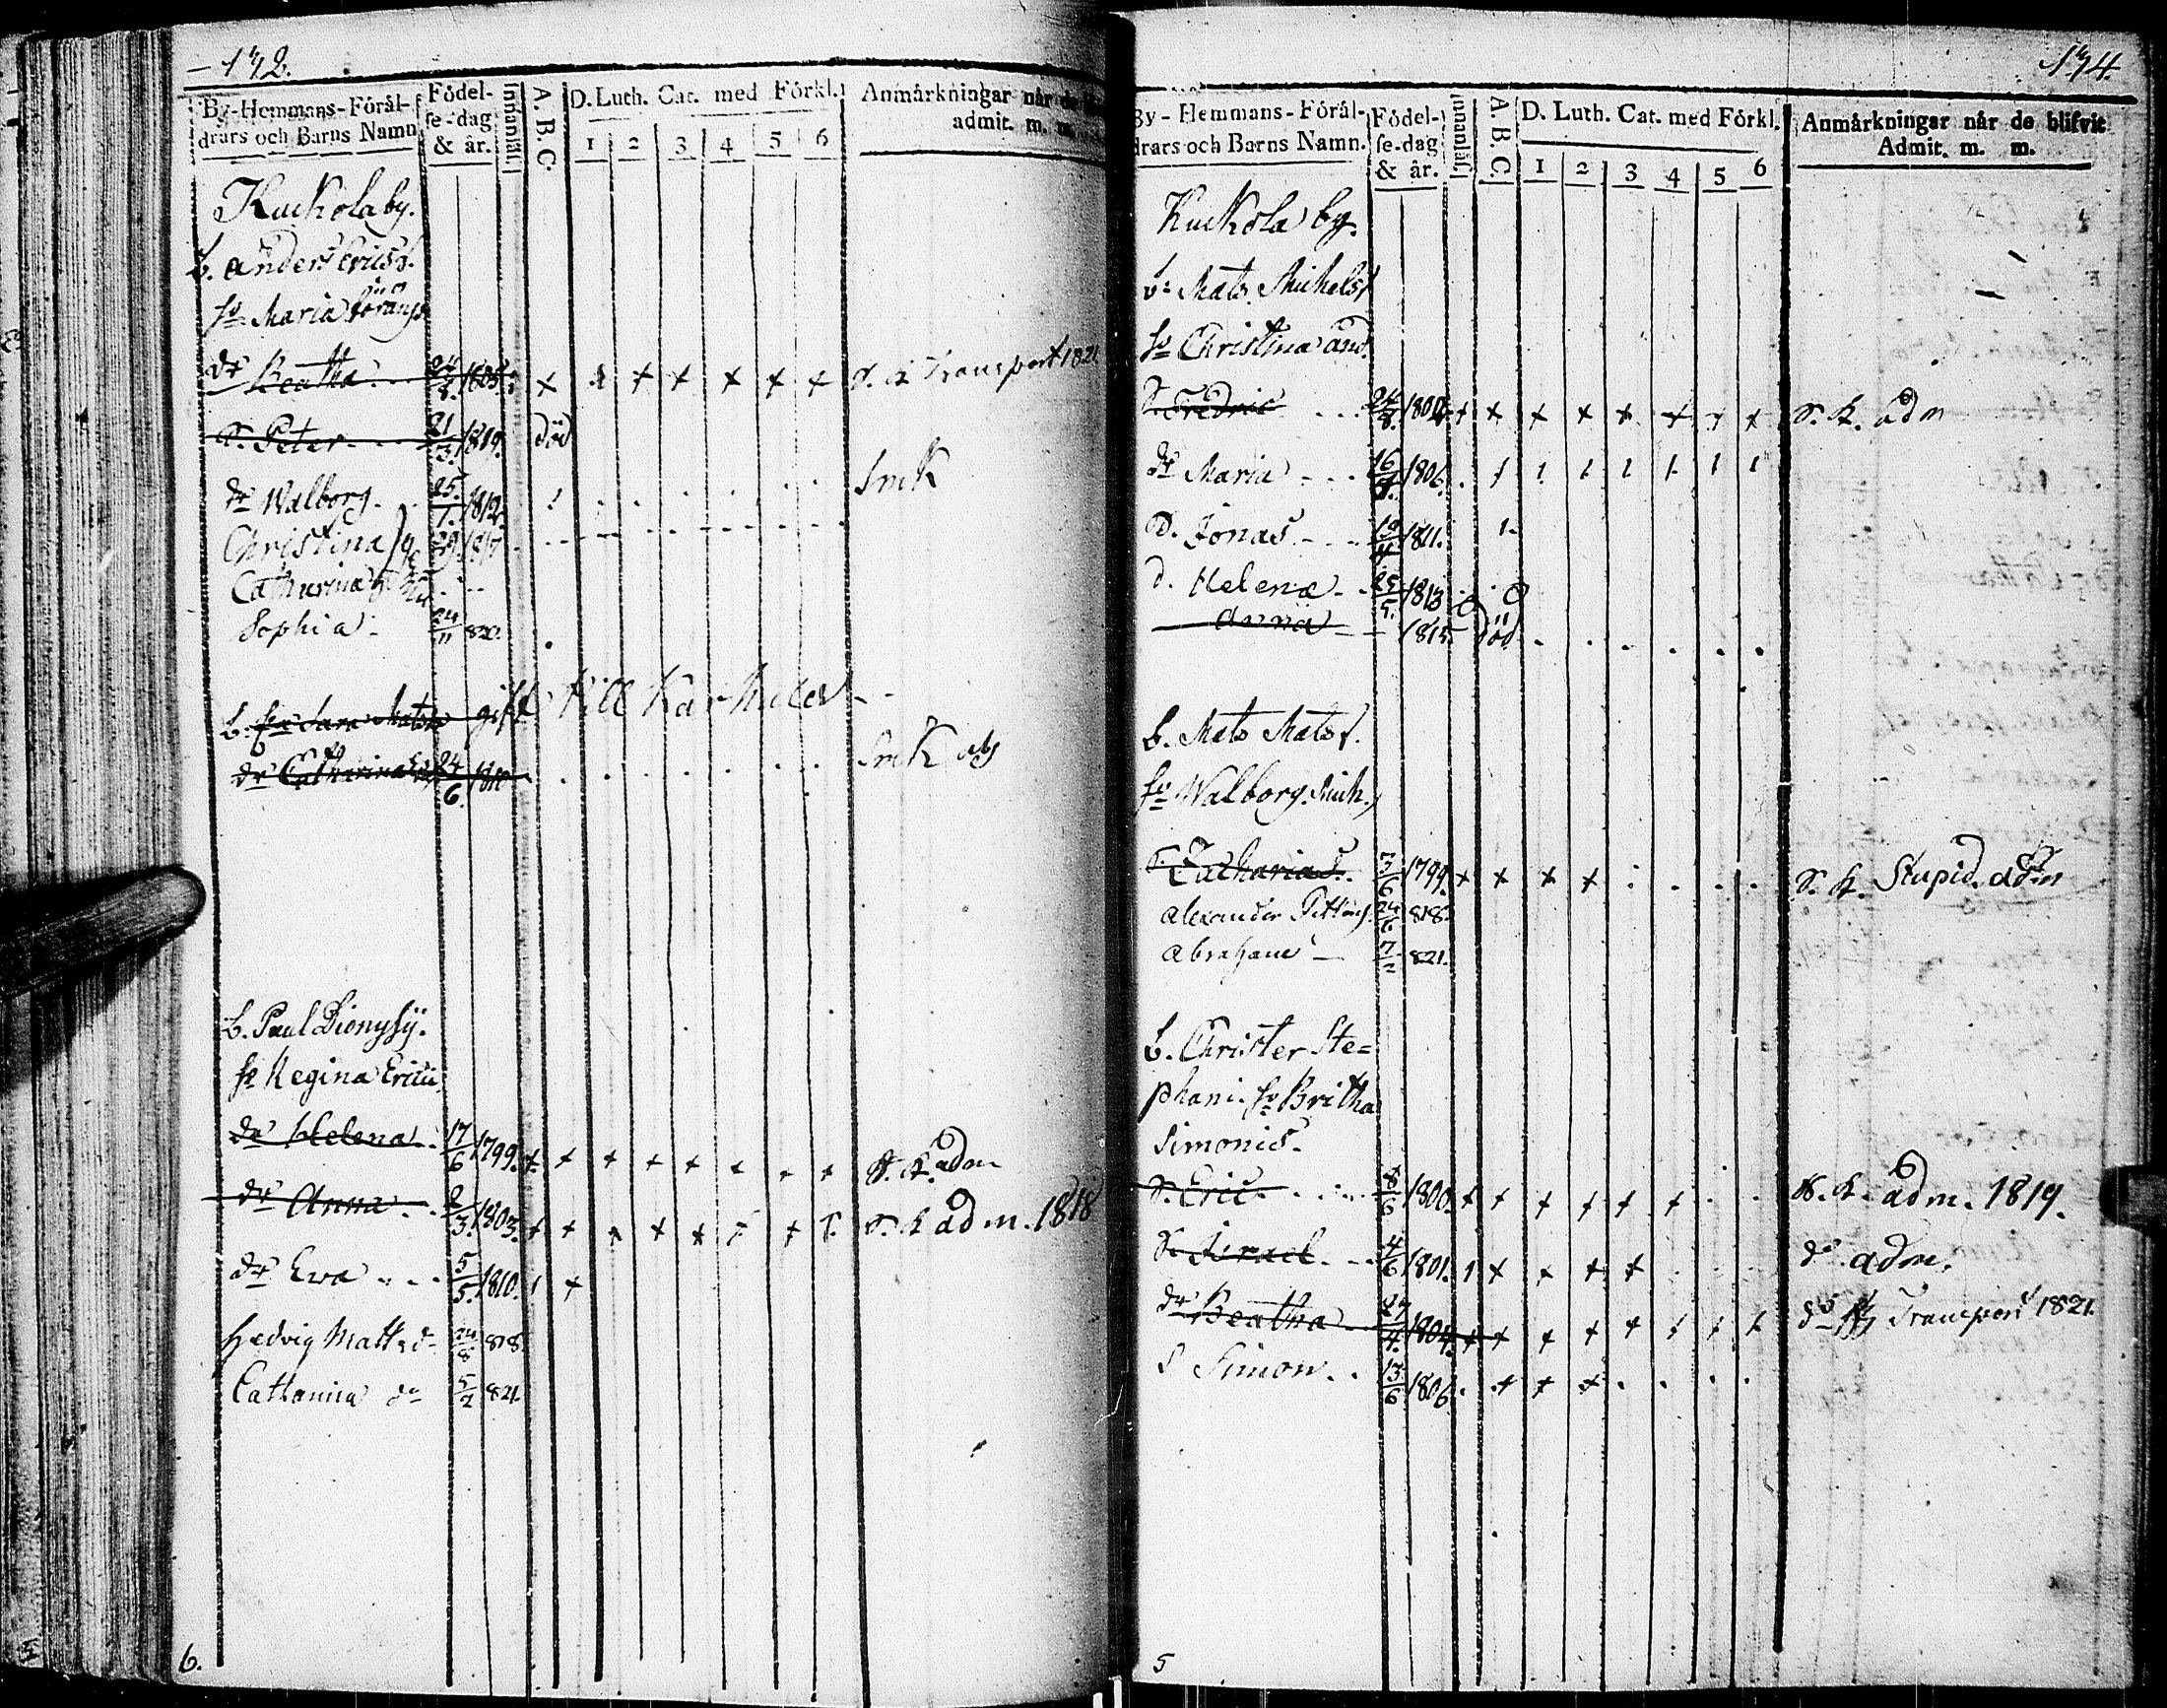 172.
By-Hemmans-Förål-
drars och Barns Namn
Födel-
se-dag
& år.
Innanläs.
A. B. C.
D. Luth. Cat. med Förkl.
1 2 3 4 5 6
Anmärkningar når de
admit. m. m.
Kuckola by.
b. Anders Ericss.
hu Maria Göransd
dr Beatha 24/8. 1805. x x x x x x x S. K Transport 1821
S. Peter 21/3. 1819. död
dr Walborg 25/1. 1812. SmK
Christina 29 1817
Catharina
Sophia 24/11 820.
b. Sara Matsd gift till Kar
dr Catharina 24/6. 1810 SmK
b. Paul Dionysÿ.
hu Regina Ericii
dr Helena 17/6 1799. + + + + + + + + S. K. adm
dr Anna 2/3. 1803. S. K adm. 1818
dr Eva 5/5. 1810. 1 +
Hedvig Mattsd 24/8 818
Catharina 5/2 821.
6.
174.
By-Hemmans-Förål-
drars och Barns Namn.
Födel-
se-dag
& år.
Innanläs.
A. B. C.
D. Luth. Cat. med Förkl.
1 2 3 4 5 6
Anmärkningar når de blifvit
Admit. m. m.
Kuckola by.
b. Mats Michelss
hu Christina And.
S. Fredric 24/8. 1802 + x x x x x x x S. K. adm
dr Maria 16/7. 1806. 1 1 1 1 1 1 1
D. Jonas 19/4 1811. 1
d. Helena 25/5. 1813
Anna 1815 död
b. Mats Matss.
hu Walborg Mich.
S. Zacharias 7/6 1799. + x x x S. K. Stupid. adm
Alexander 24/6 818.
Abraham 7/2 821.
b. Christer Ste=
phani. hu Britha
Simonis.
S. Eric 8/6 1800. + + + + + + S. K. adm. 1819.
S. Israel 4/6 1801. 1 x x x x do adm.
dr Beatha 27/4. 1804. + + + + + + + + do Transport 1821.
S Simon 13/6 1806. + + x
5